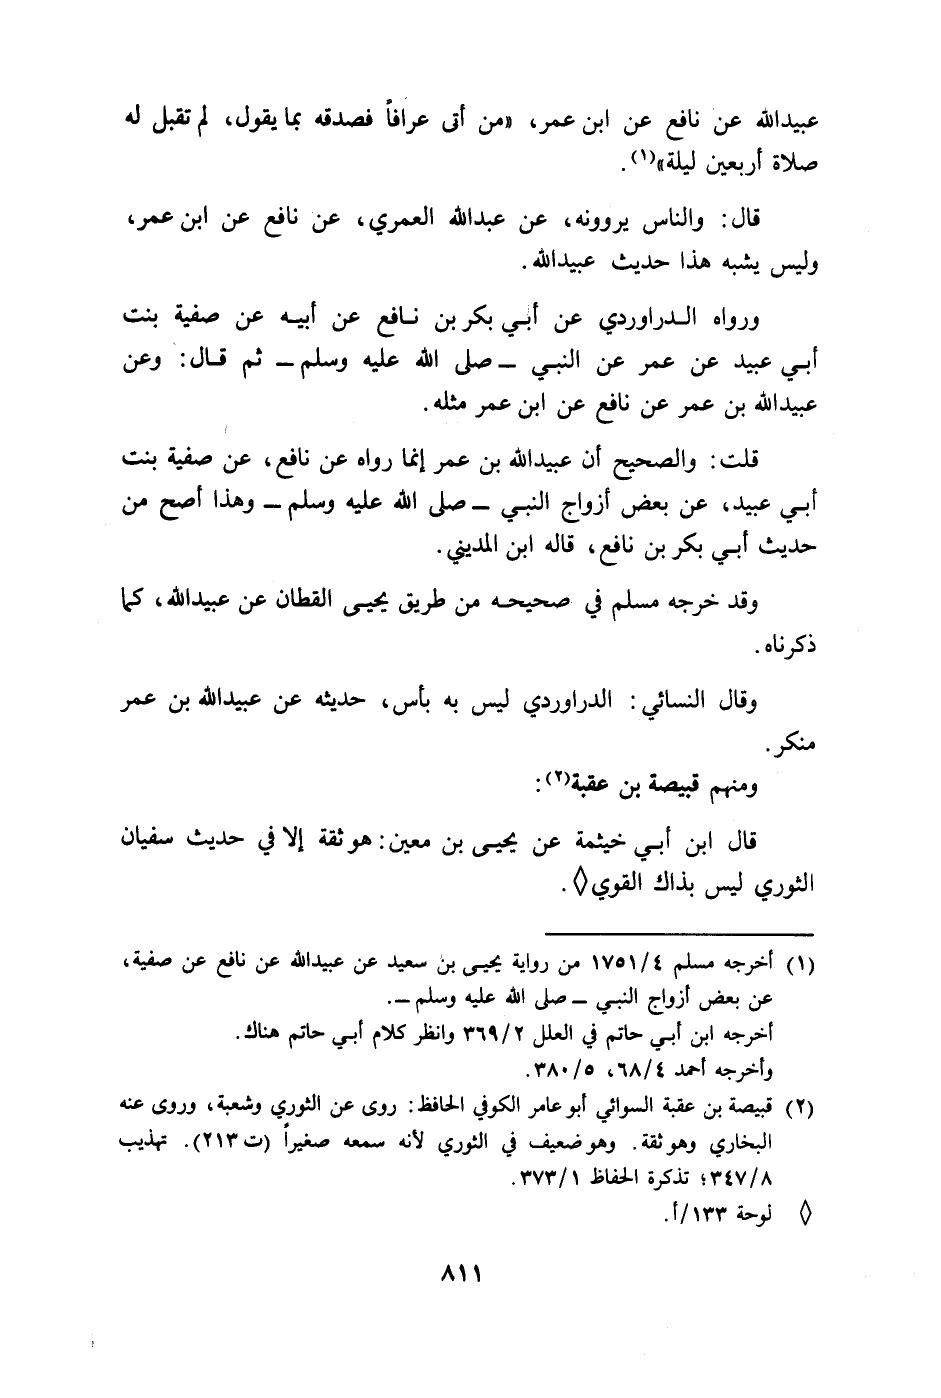 عبيدالله عن نافع عن ابن عمر، «من أتى عرافاً فصدقه بما يقول، لم تقبل له
صلاة أربعين ليلة»(١).
قال: والناس يروونه، عن عبدالله العمري، عن نافع عن ابن عمر،
وليس يشبه هذا حديث عبيدالله.
ورواه الدراوردي عن أبي بكر بن نافع عن أبيه عن صفية بنت
أبي عبيد عن عمر عن النبي ــ صلى الله عليه وسلم ــ ثم قال: وعن
عبيدالله بن عمر عن نافع عن ابن عمر مثله.
قلت: والصحيح أن عبيدالله بن عمر إنما رواه عن نافع، عن صفية بنت
أبي عبيد، عن بعض أزواج النبي ــ صلى الله عليه وسلم ــ وهذا أصح من
حديث أبي بكر بن نافع، قاله ابن المديني.
وقد خرجه مسلم في صحيحه من طريق يحيى القطان عن عبيدالله، كما
ذكرناه.
وقال النسائي: الدراوردي ليس به بأس، حديثه عن عبيدالله بن عمر
منكر.
ومنهم قبيصة بن عقبة(٢):
قال ابن أبي خيثمة عن يحيى بن معين: هو ثقة إلا في حديث سفيان
الثوري ليس بذاك القوي◊.
(١) أخرجه مسلم ١٧٥١/٤ من رواية يحيى بن سعيد عن عبيدالله عن نافع عن صفية،
عن بعض أزواج النبي ــ صلى الله عليه وسلم ــ.
أخرجه ابن أبي حاتم في العلل ٣٦٩/٢ وانظر كلام أبي حاتم هناك.
وأخرجه أحمد ٦٨/٤، ٣٨٠/٥.
(٢) قبيصة بن عقبة السوائي أبو عامر الكوفي الحافظ: روى عن الثوري وشعبة، وروى عنه
البخاري وهو ثقة. وهو ضعيف في الثوري لأنه سمعه صغيراً (ت ٢١٣). تهذيب
٣٤٧/٨؛ تذكرة الحفاظ ٣٧٣/١.
◊ لوحة ١٣٣/أ.
٨١١